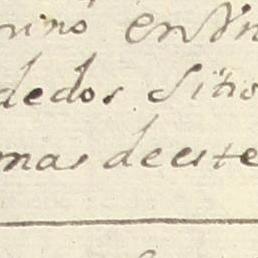 rino en Vn
dedos Sitio
mas de este